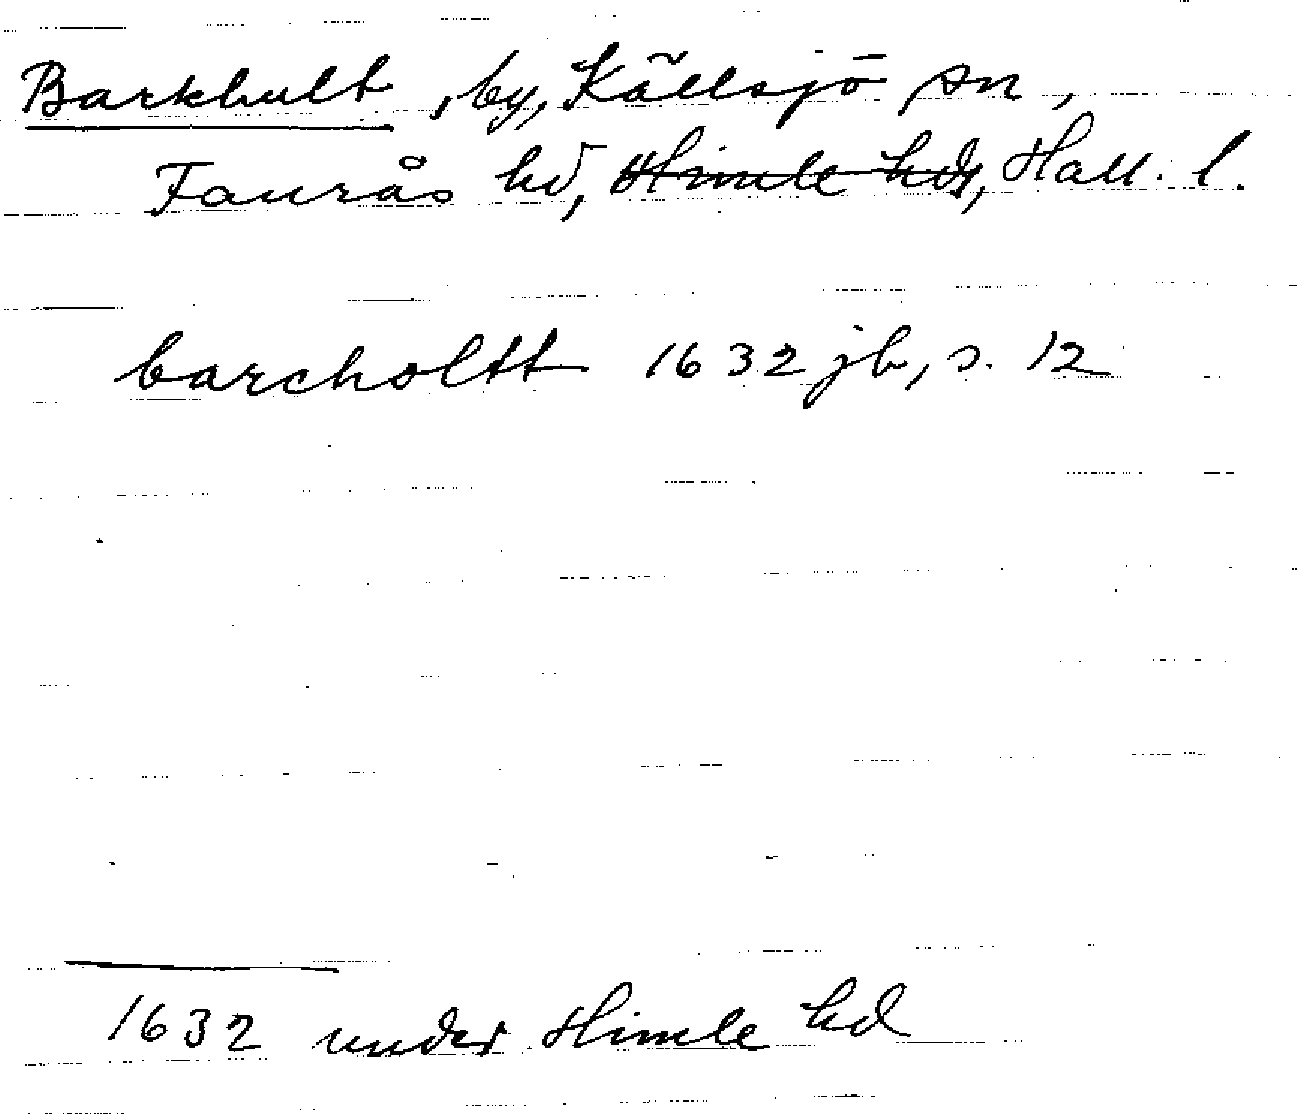 Barkhult, by, Källsjö sn,
Faurås hd, Himle hd, Hall. l.
barcholtt 1632 jb, s. 12
1632 under Himle hd